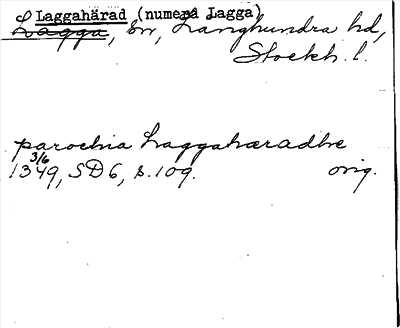 Laggahärad (numera Lagga)
Lagga, sn, Långhundra hd,
Stockh. l.
parochia Laggahæradhe
3/6
1349, SD 6, s. 109. orig.